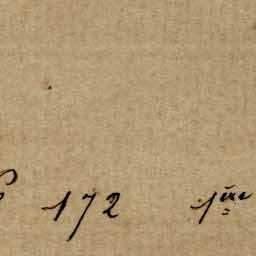 172 1ère